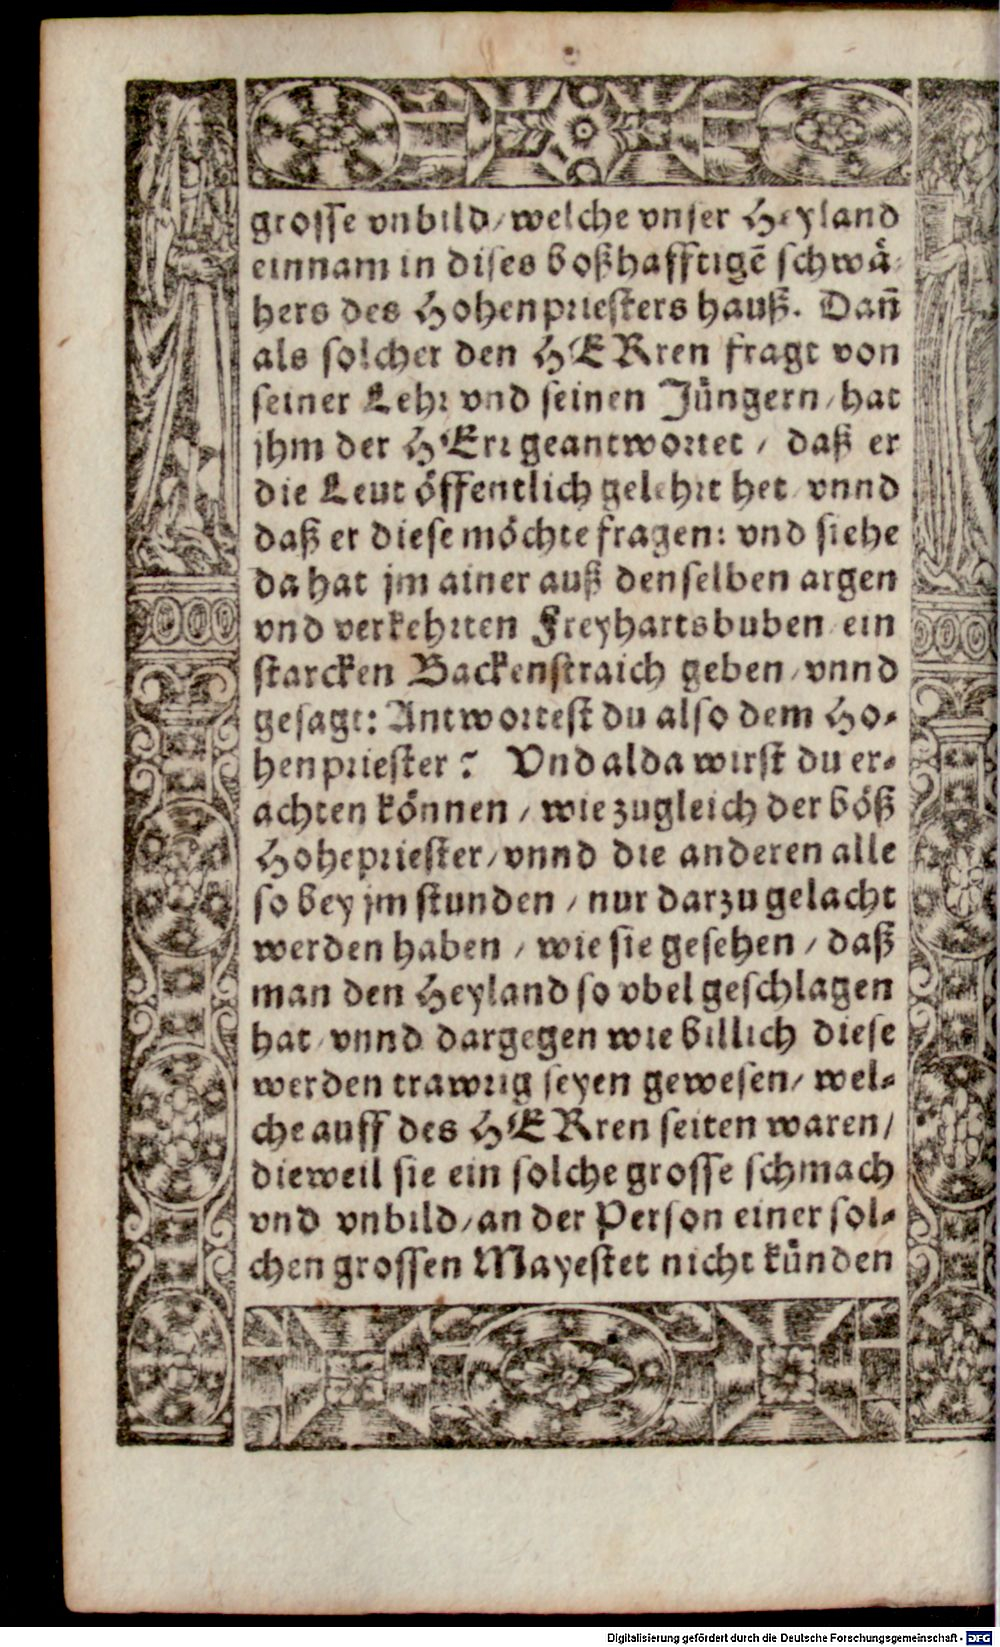 grosse vnbild/welche vnser Heyland
einnam in dises boßhafftigē schwä-
hers des Hohenpriesters hauß. Dañ
als solcher den HERren fragt von
seiner Lehr vnd seinen Jüngern/hat
jhm der HErr geantwortet / daß er
die Leut öffentlich gelehrt het/vnnd
daß er diese möchte fragen: vnd siehe
da hat jm ainer auß denselben argen
vnd verkehrten Freyhartsbuben ein
starcken Backenstraich geben/vnnd
gesagt: Antwortest du also dem Ho-
henpriester? Vnd alda wirst du er-
achten können / wie zugleich der böß
Hohepriester/vnnd die anderen alle
so bey jm stunden / nur darzu gelacht
werden haben / wie sie gesehen / daß
man den Heyland so vbel geschlagen
hat/vnnd dargegen wie billich diese
werden trawrig seyen gewesen/ wel-
che auff des HERren seiten waren/
dieweil sie ein solche grosse schmach
vnd vnbild/an der Person einer sol-
chen grossen Mayestet nicht künden
Digitalisierung gefördert durch die Deutsche Forschungsgemeinschaft - DFG